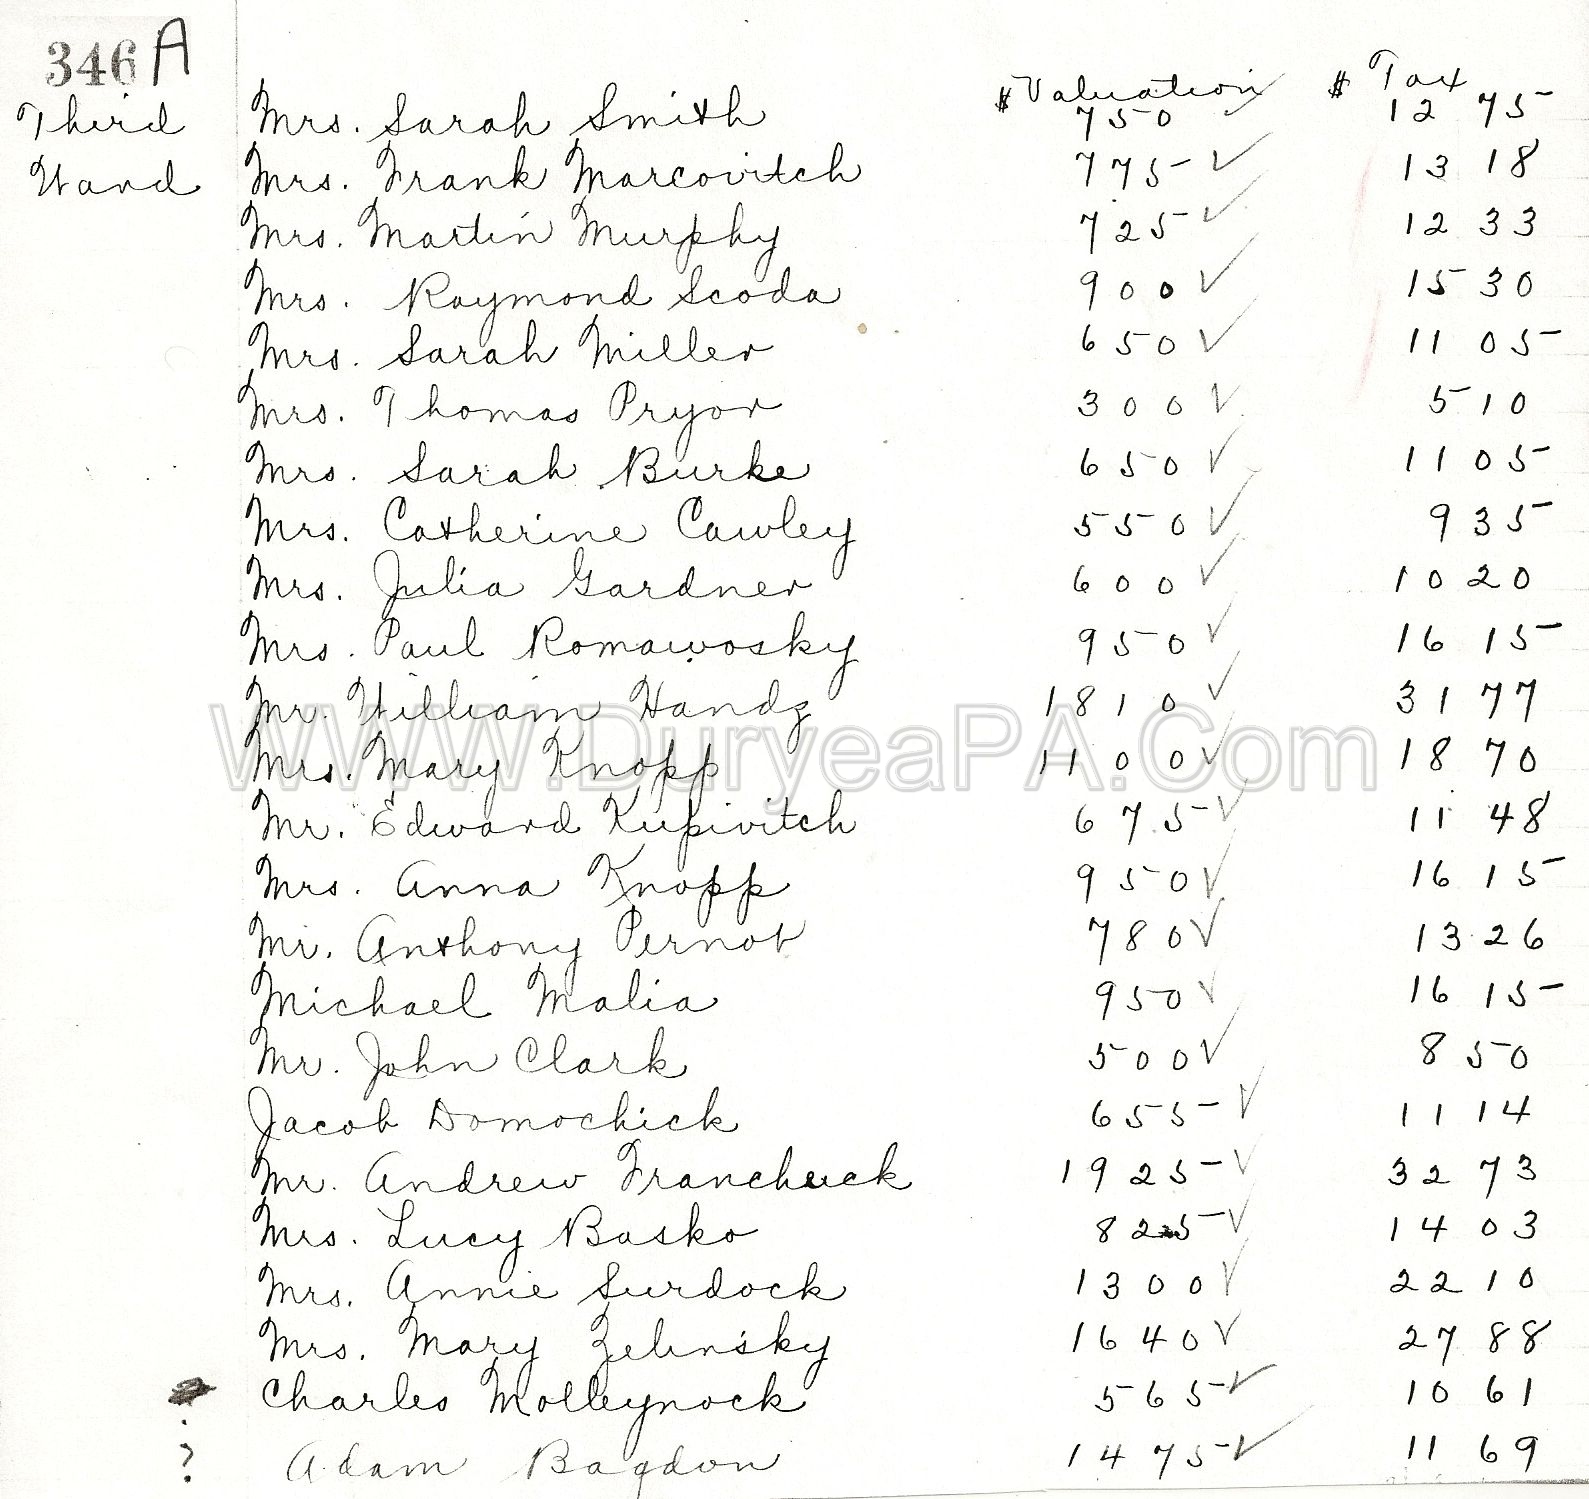 346 A
$ Valuation $ Tax
Third Mrs. Sarah Smith 750 12 75
Ward Mrs. Frank Marcovitch 775 13 18
Mrs. Martin Murphy 725 12 33
Mrs. Raymond Scoda 900 15 30
Mrs. Sarah Miller 650 11 05
Mrs. Thomas Pryor 300 5 10
Mrs. Sarah Burke 650 11 05
Mrs. Catherine Cawley 550 9 35
Mrs. Julia Gardner 600 10 20
Mrs. Paul Romawosky 950 16 15
Mr. William Handz 1810 31 77
WWW.DuryeaPA.Com
Mrs. Mary Knopp 1100 18 70
Mr. Edward Kupivitch 675 11 48
Mrs. Anna Knopp 950 16 15
Mr. Anthony Pernot 780 13 26
Michael Malia 950 16 15
Mr. John Clark 500 8 50
Jacob Domochick 655 11 14
Mr. Andrew Francheuck 1925 32 73
Mrs. Lucy Basko 825 14 03
Mrs. Annie Surdock 1300 22 10
Mrs. Mary Zelinsky 1640 27 88
Charles Molleynock 565 10 61
? Adam Bagdon 1475 11 69